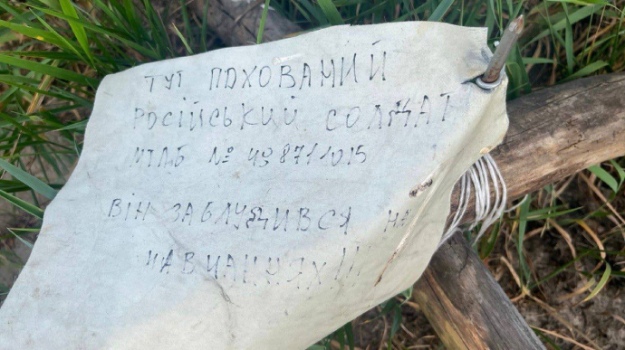 ТУТ ПОХОВАНИЙ
РОСІЙСЬКИЙ СОЛДАТ
МТЛБ № 498711015
ВІН ЗАБЛУДИВСЯ НА
НАВЧАННЯХ!!